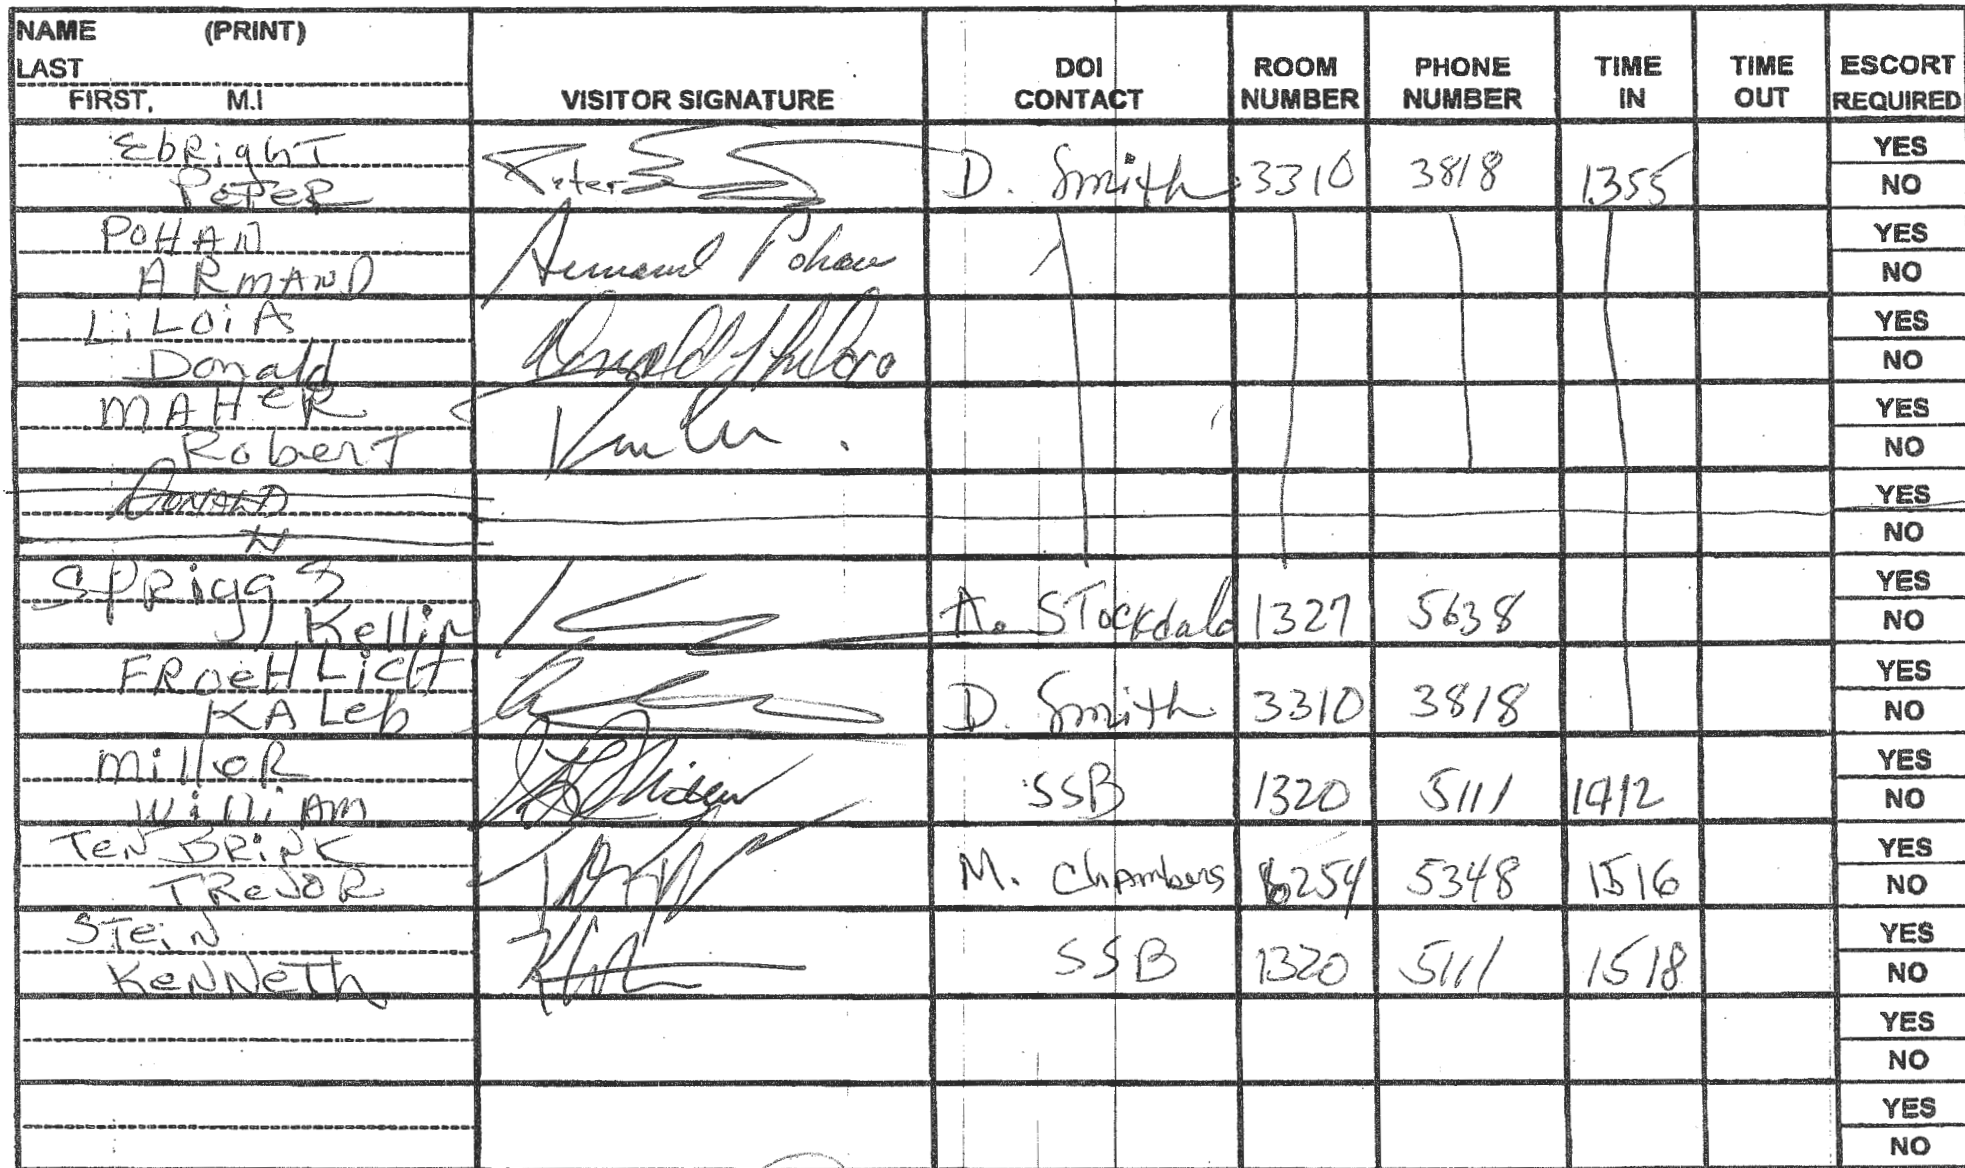 NAME (PRINT)
LAST
FIRST, M.I
VISITOR SIGNATURE
DOI CONTACT
ROOM NUMBER
PHONE NUMBER
TIME IN
TIME OUT
ESCORT REQUIRED
EbRighT
PeTeR
Peter
D. Smith 3310 3818 1355
YES
NO
POHAN
ARMAND
Armand Pohan
YES
NO
LiLOiA
Donald
Donald
YES
NO
MAHeR
RoberT
YES
NO
DONALD
N
YES
NO
SPRiggS
Kellie
A. STockdale 1327 5638
YES
NO
FROeHLicH
KALeb
D. Smith 3310 3818
YES
NO
MilleR
WilliAM
SSB 1320 5111 1412
YES
NO
TeN BRiNK
TReVOR
M. Chambers 6254 5348 1516
YES
NO
STeiN
KeNNeTh
SSB 1320 5111 1518
YES
NO
YES
NO
YES
NO